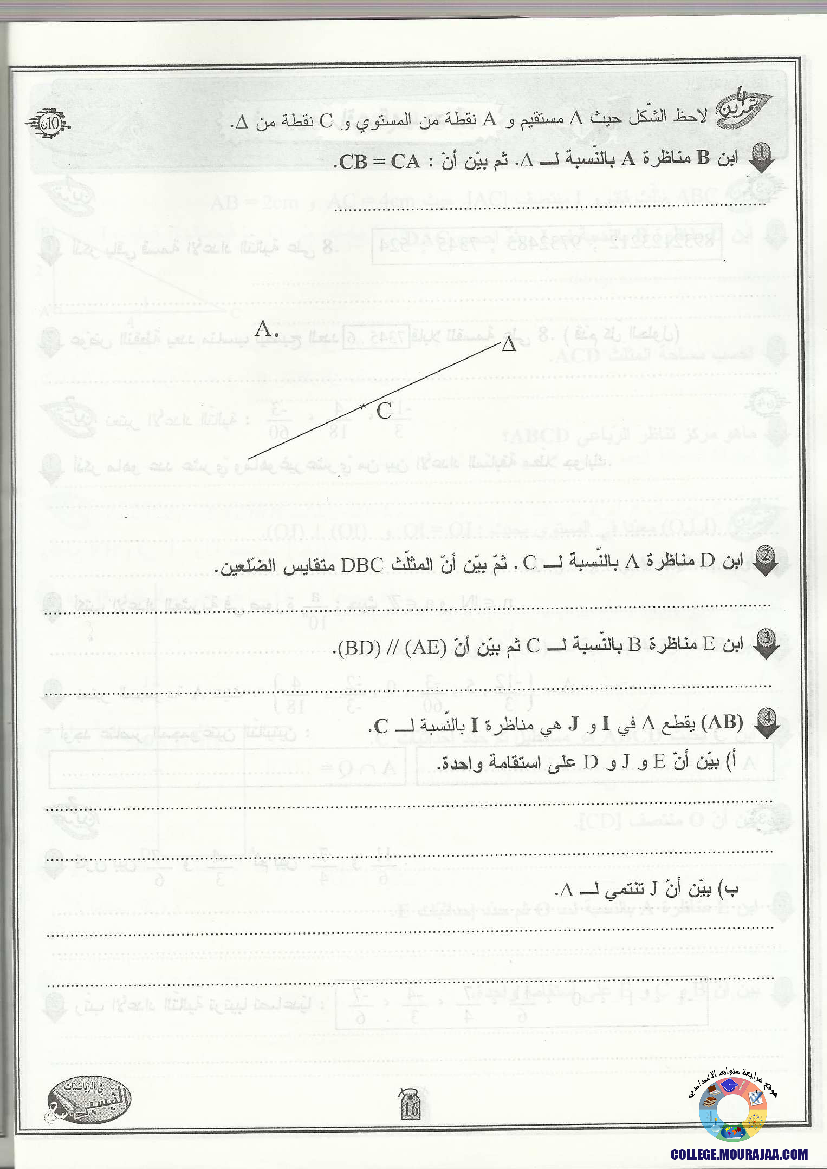 تمرين
لاحظ الشّكل حيث Δ مستقيم و A نقطة من المستوي و C نقطة من Δ.
10ن
1 ابن B مناظرة A بالنّسبة لـ Δ. ثم بيّن أنّ : CB = CA.
A.
Δ
C
2 ابن D مناظرة A بالنّسبة لـ C . ثمّ بيّن أنّ المثلّث DBC متقايس الضّلعين.
3 ابن E مناظرة B بالنّسبة لـ C ثم بيّن أنّ (AE) // (BD).
4 (AB) يقطع Δ في I و J هي مناظرة I بالنّسبة لـ C.
أ) بيّن أنّ E و J و D على استقامة واحدة.
ب) بيّن أنّ J تنتمي لـ Δ.
في الرياضيات
16
موقع مراجعة
COLLEGE.MOURAJAA.COM